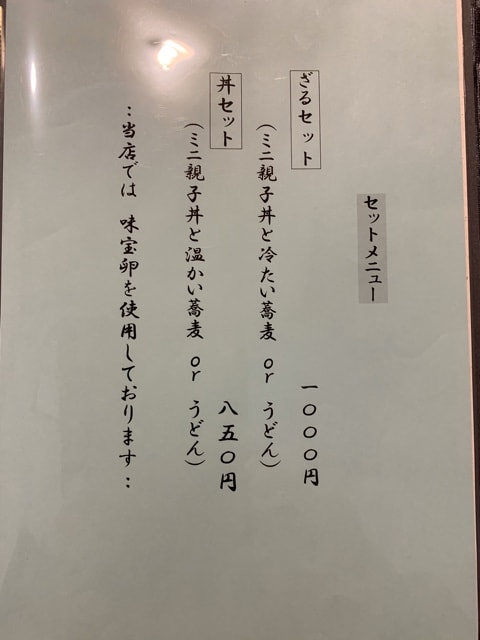 セットメニュー
ざるセット 一〇〇〇円
(ミニ親子丼と冷たい蕎麦 or うどん)
丼セット 八五〇円
(ミニ親子丼と温かい蕎麦 or うどん)
:当店では 味宝卵を使用しております: